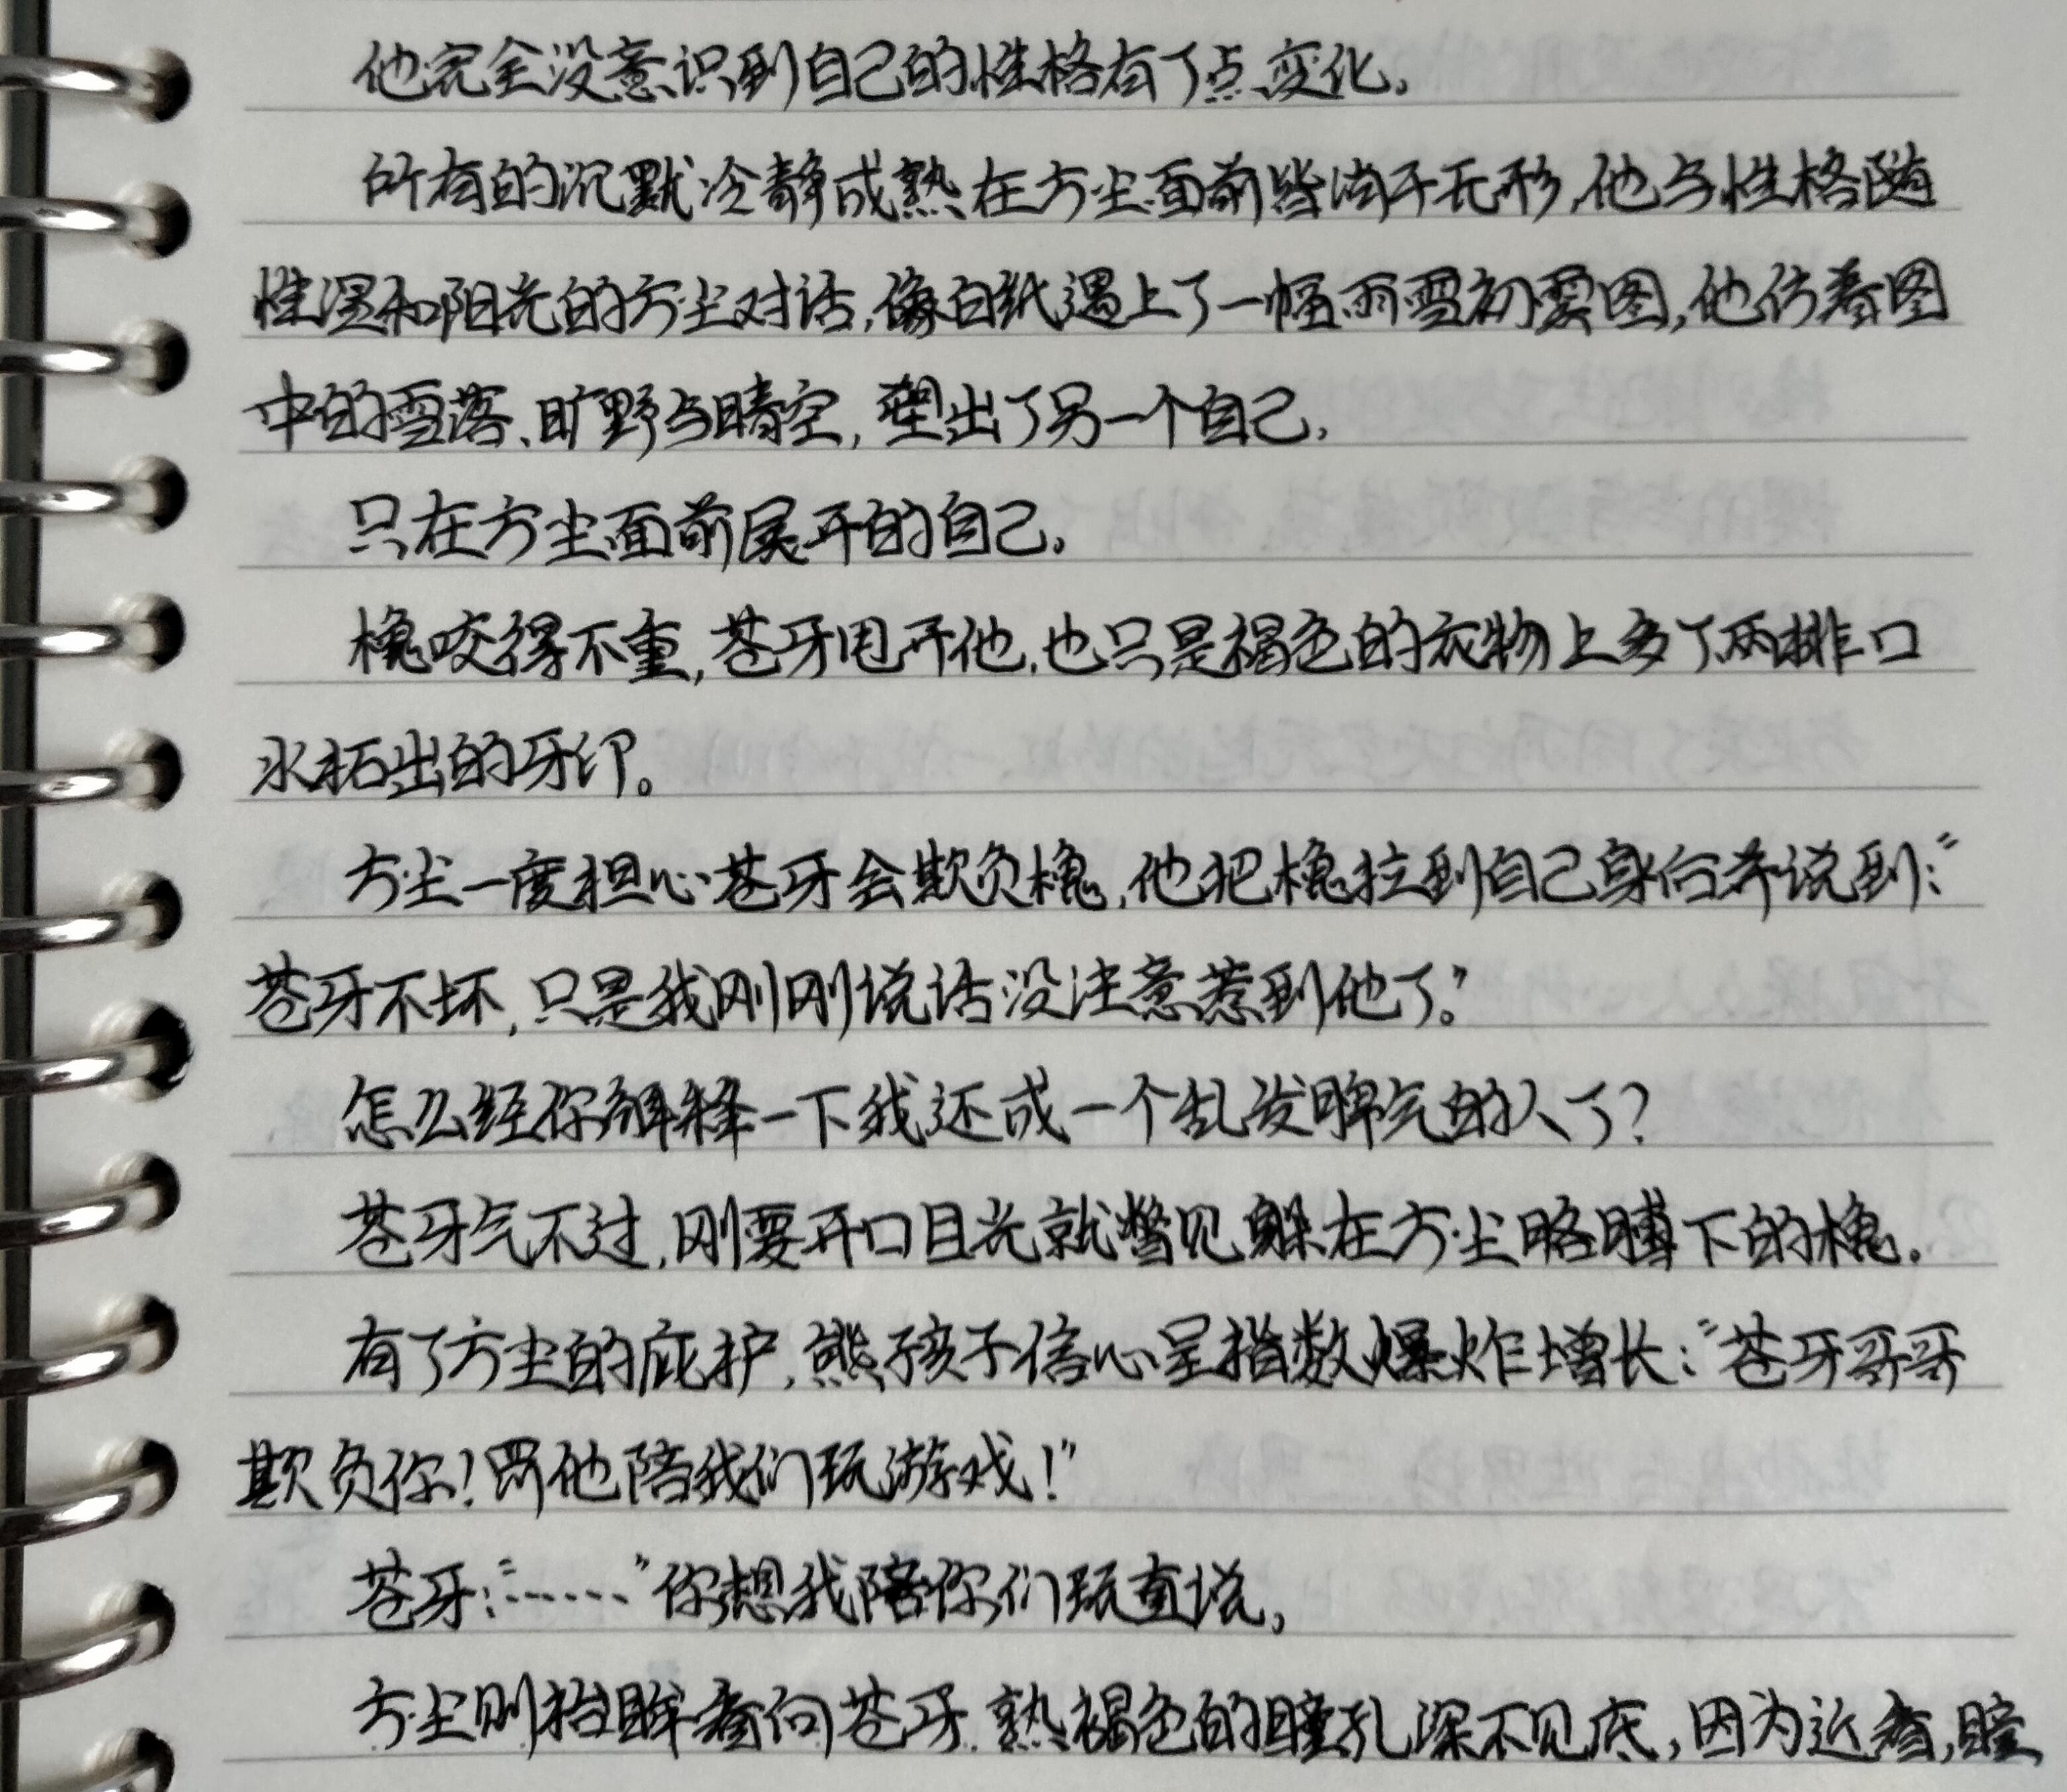 他完全没意识到自己的性格有了点变化。
所有的沉默冷静成熟在方尘面前皆消于无形，他与性格随
性温和阳光的方尘对话，像白纸遇上了一幅雨雪初霁图，他仿着图
中的雪落、旷野与晴空，塑出了另一个自己，
只在方尘面前展开的自己。
槐咬得不重，苍牙甩开他，也只是褐色的衣物上多了两排口
水拓出的牙印。
方尘一度担心苍牙会欺负槐，他把槐拉到自己身后并说到：“
苍牙不坏，只是我刚刚说话没注意惹到他了。”
怎么经你解释一下我还成一个乱发脾气的人了？
苍牙气不过，刚要开口目光就瞥见躲在方尘胳膊下的槐。
有了方尘的庇护，熊孩子信心呈指数爆炸增长：“苍牙哥哥
欺负你！罚他陪我们玩游戏！”
苍牙：“……”你想我陪你们玩直说，
方尘则抬眸看向苍牙，熟褐色的瞳孔深不见底，因为近看，瞳